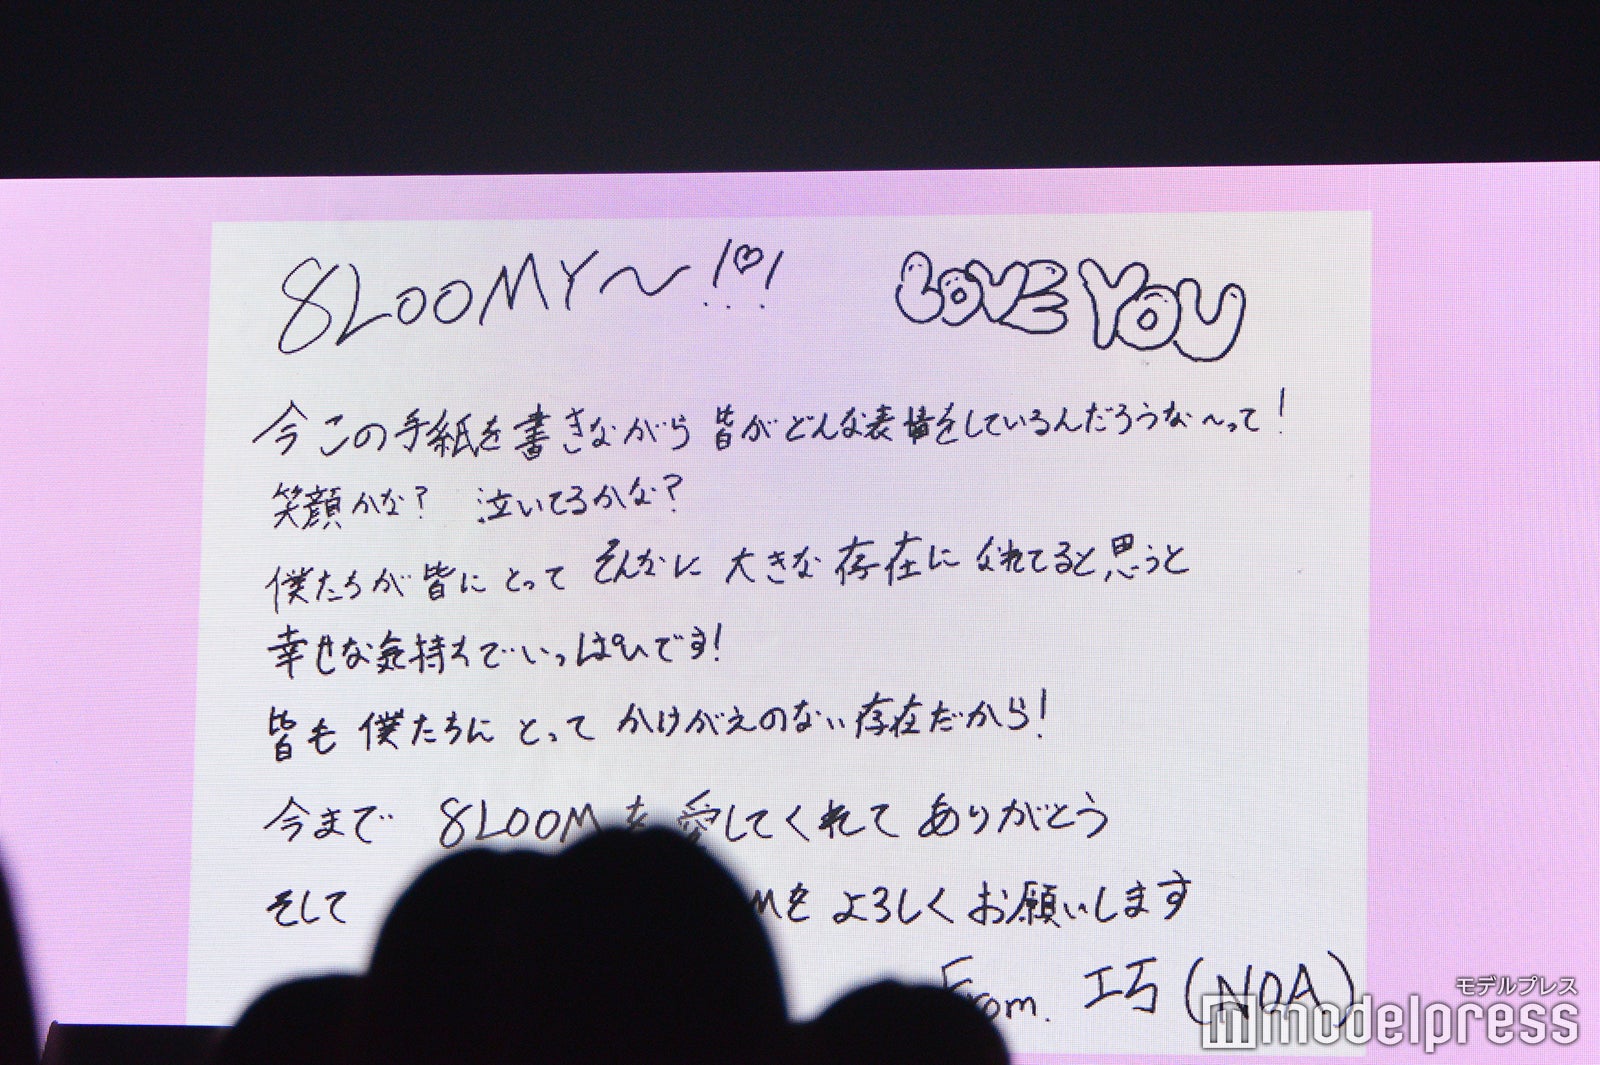 8LOOMY〜!♡! LOVE YOU
今この手紙を書きながら 皆がどんな表情をしているんだろうな〜って!
笑顔かな? 泣いてるかな?
僕たちが皆にとって そんなに 大きな存在になれてると思うと
幸せな気持ちでいっぱいです!
皆も 僕たちに とって かけがえのない存在だから!
今まで 8LOOMを愛してくれて ありがとう
そして Mを よろしく お願いします
From. 工巧 (NOA)
モデルプレス
modelpress